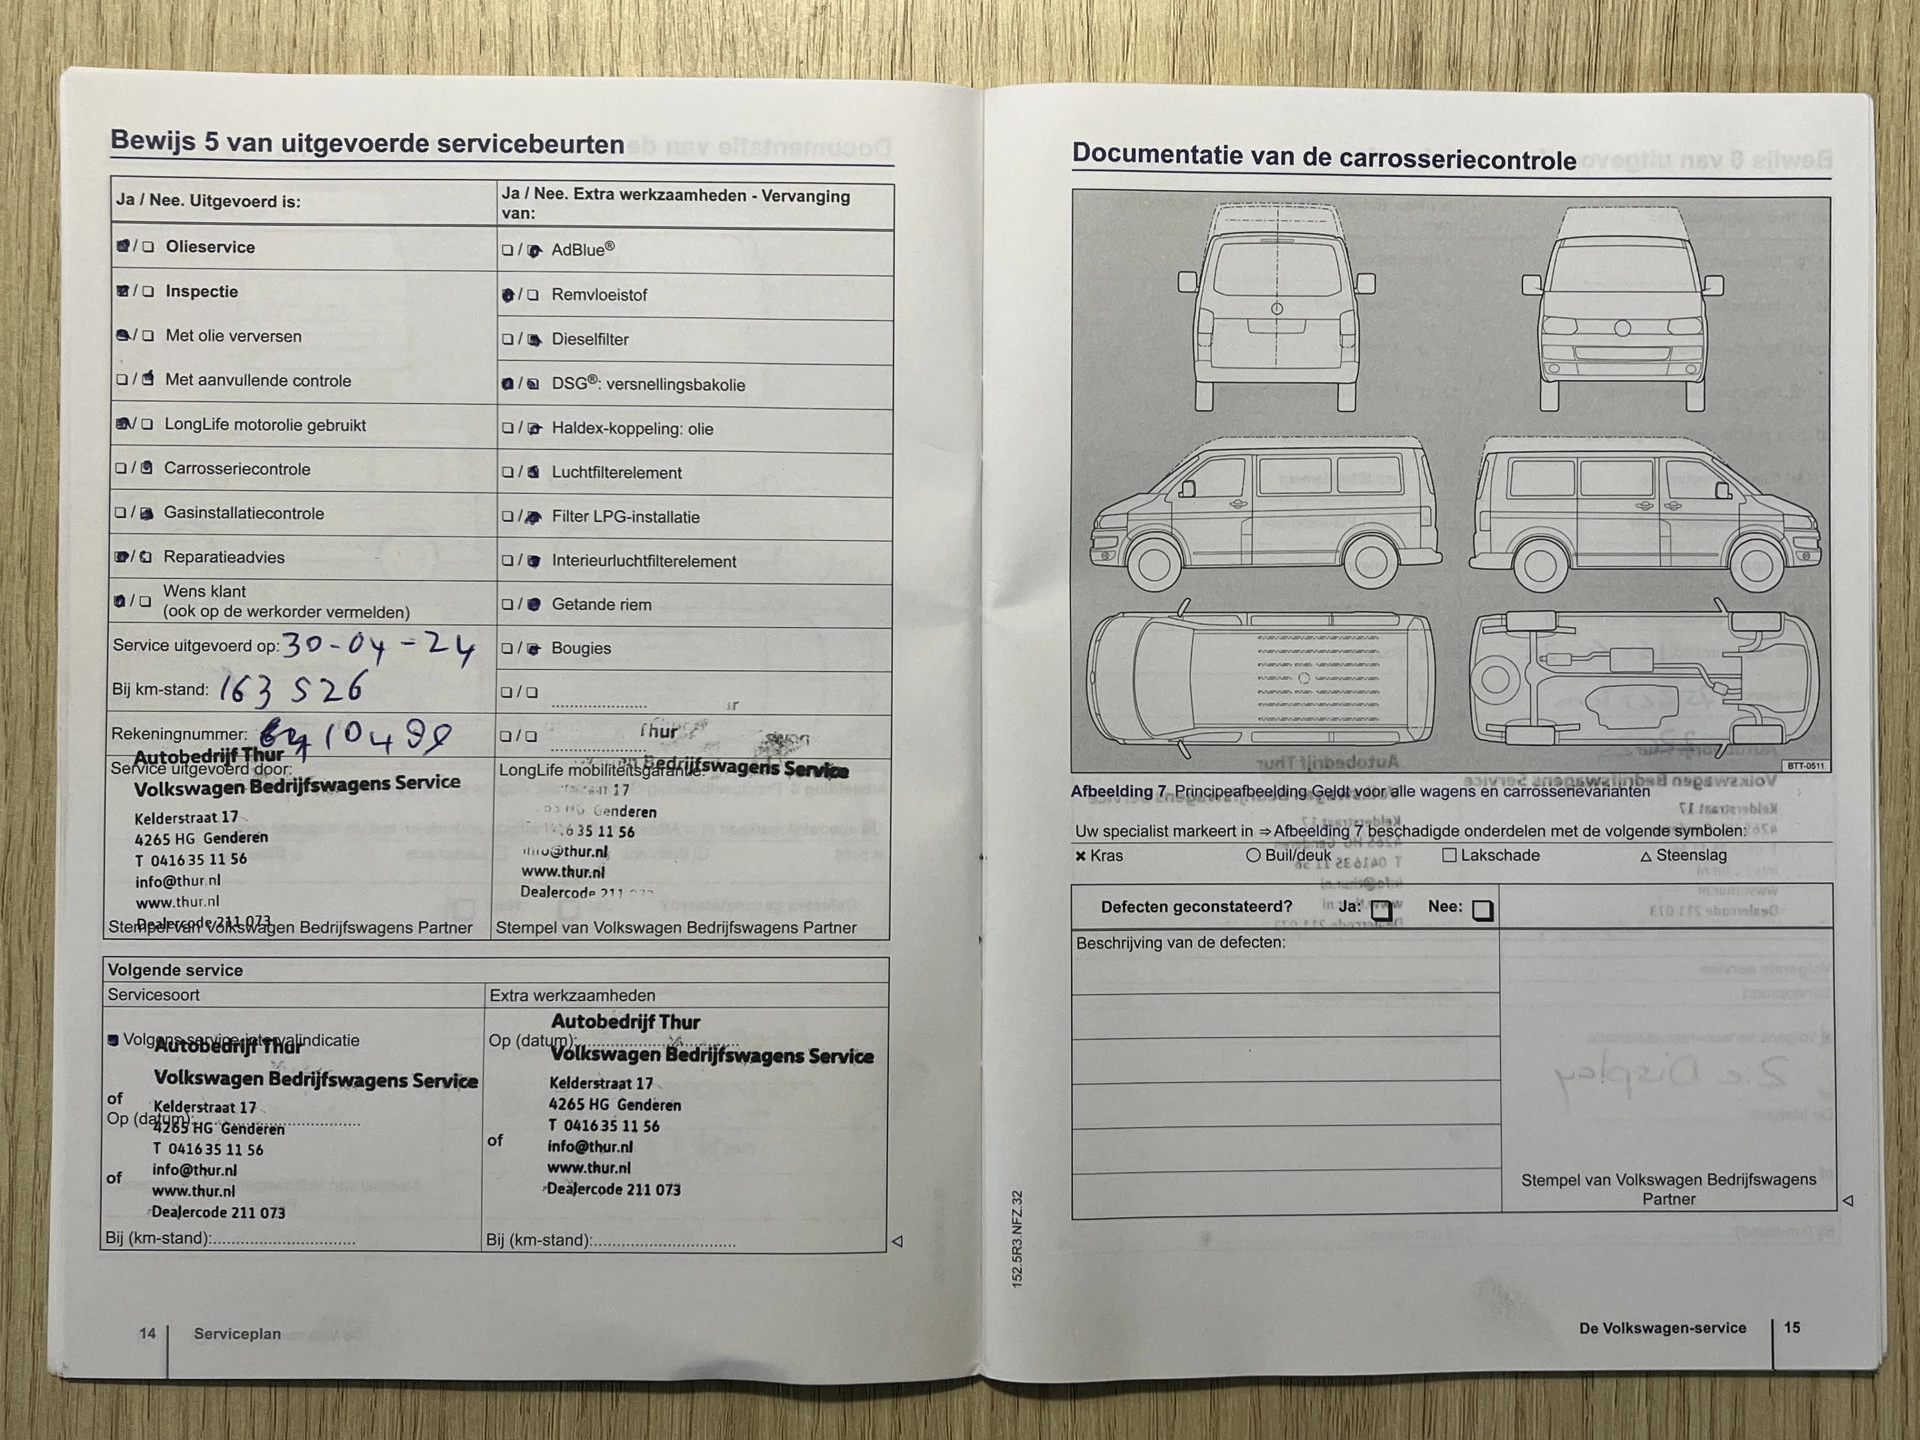 Bewijs 5 van uitgevoerde servicebeurten
Ja / Nee. Uitgevoerd is:
Ja / Nee. Extra werkzaamheden - Vervanging van:
Olieservice
Inspectie
Met olie verversen
Met aanvullende controle
LongLife motorolie gebruikt
Carrosseriecontrole
Gasinstallatiecontrole
Reparatieadvies
Wens klant
(ook op de werkorder vermelden)
Service uitgevoerd op: 30-04-24
Bij km-stand: 163 526
Rekeningnummer:
Service uitgevoerd door:
Autobedrijf Thur
Volkswagen Bedrijfswagens Service
Kelderstraat 17
4265 HG Genderen
T 0416 35 11 56
info@thur.nl
www.thur.nl
Dealercode 211 073
Stempel van Volkswagen Bedrijfswagens Partner
AdBlue®
Remvloeistof
Dieselfilter
DSG®: versnellingsbakolie
Haldex-koppeling: olie
Luchtfilterelement
Filter LPG-installatie
Interieurluchtfilterelement
Getande riem
Bougies
Thur
LongLife mobiliteitsgarantie:
Bedrijfswagens Service
17
Genderen
35 11 56
@thur.nl
www.thur.nl
Dealercode 211
Stempel van Volkswagen Bedrijfswagens Partner
Volgende service
Servicesoort
Volgens service-intervalindicatie
Autobedrijf Thur
Volkswagen Bedrijfswagens Service
of
Kelderstraat 17
Op (datum):
4265 HG Genderen
T 0416 35 11 56
info@thur.nl
of
www.thur.nl
Dealercode 211 073
Bij (km-stand):
Extra werkzaamheden
Autobedrijf Thur
Op (datum):
Volkswagen Bedrijfswagens Service
Kelderstraat 17
4265 HG Genderen
T 0416 35 11 56
of
info@thur.nl
www.thur.nl
Dealercode 211 073
Bij (km-stand):
14 Serviceplan
Documentatie van de carrosseriecontrole
BTT-0511
Afbeelding 7 Principeafbeelding Geldt voor alle wagens en carrosserievarianten
Uw specialist markeert in ⇒ Afbeelding 7 beschadigde onderdelen met de volgende symbolen:
× Kras ○ Buil/deuk □ Lakschade △ Steenslag
Defecten geconstateerd? Ja: Nee:
Beschrijving van de defecten:
Stempel van Volkswagen Bedrijfswagens
Partner
152.5R3.NFZ.32
De Volkswagen-service 15